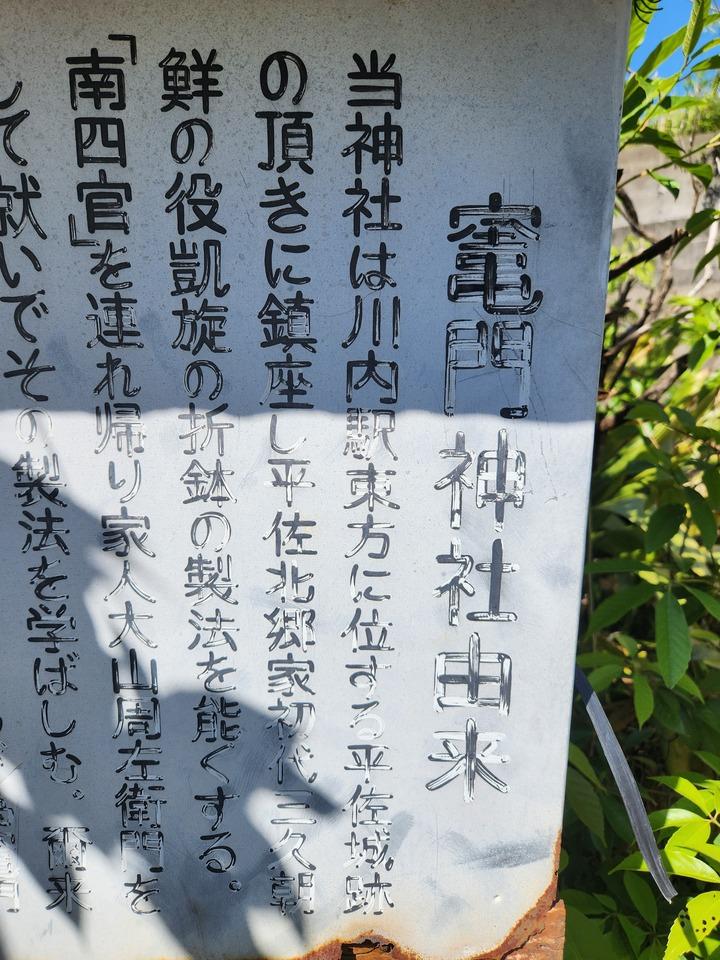 竈門神社由来
当神社は川内駅東方に位する平佐城跡
の頂きに鎮座し平佐北郷家初代三久朝
鮮の役凱旋の折鉢の製法を能くする。
「南四官」を連れ帰り家人大山周左衛門を
して就いでその製法を学ばしむ。爾来